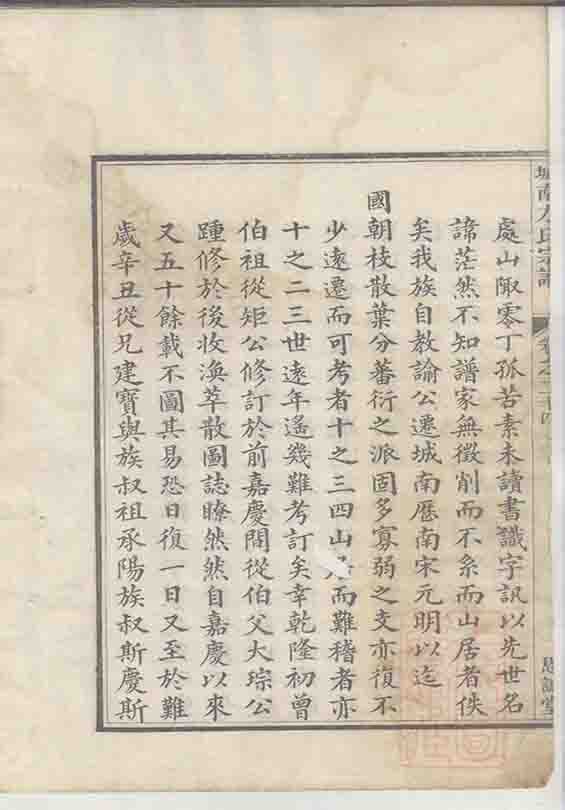 城南方氏宗譜
處山陬零丁孤苦素未讀書識字訊以先世名
諱茫然不知譜家無徵削而不系而山居者佚
矣我族自教諭公遷城南歷南宋元明以迄
國朝枝散葉分蕃衍之派固多寡弱之支亦復不
少遠遷而可考者十之三四山居而難稽者亦
十之二三世遠年遙幾難考訂矣幸乾隆初曾
伯祖從矩公修訂於前嘉慶間從伯父大琮公
踵修於後收渙萃散圖誌瞭然然自嘉慶以來
又五十餘載不圖其易恐日復一日又至於難
歲辛丑從兄建寶與族叔祖承陽族叔斯慶斯